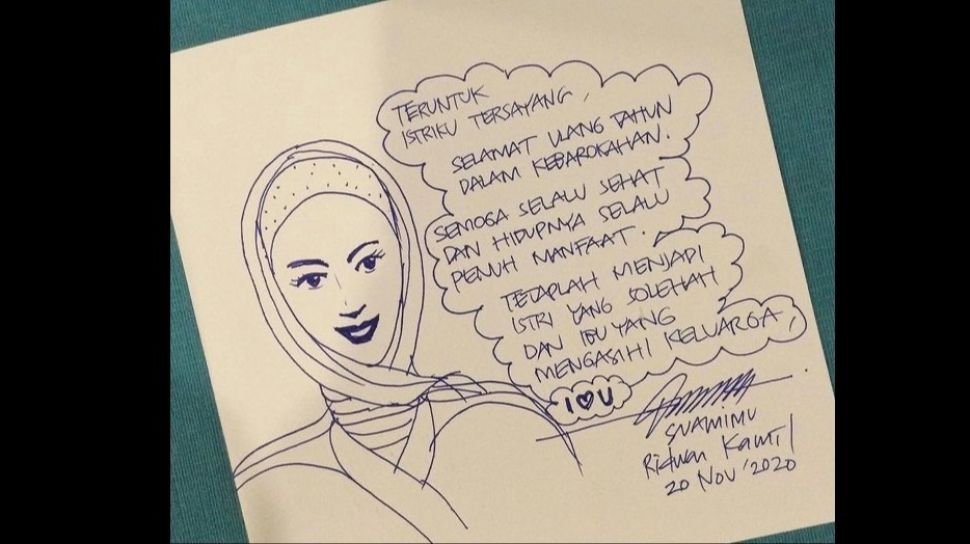 TERUNTUK
ISTRIKU TERSAYANG,
SELAMAT ULANG TAHUN
DALAM KEBAROKAHAN.
SEMOGA SELALU SEHAT
DAN HIDUPNYA SELALU
PENUH MANFAAT.
TETAPLAH MENJADI
ISTRI YANG SOLEHAH
DAN IBU YANG
MENGASIHI KELUARGA,
I ♥ U
SUAMIMU
Ridwan Kamil
20 Nov '2020